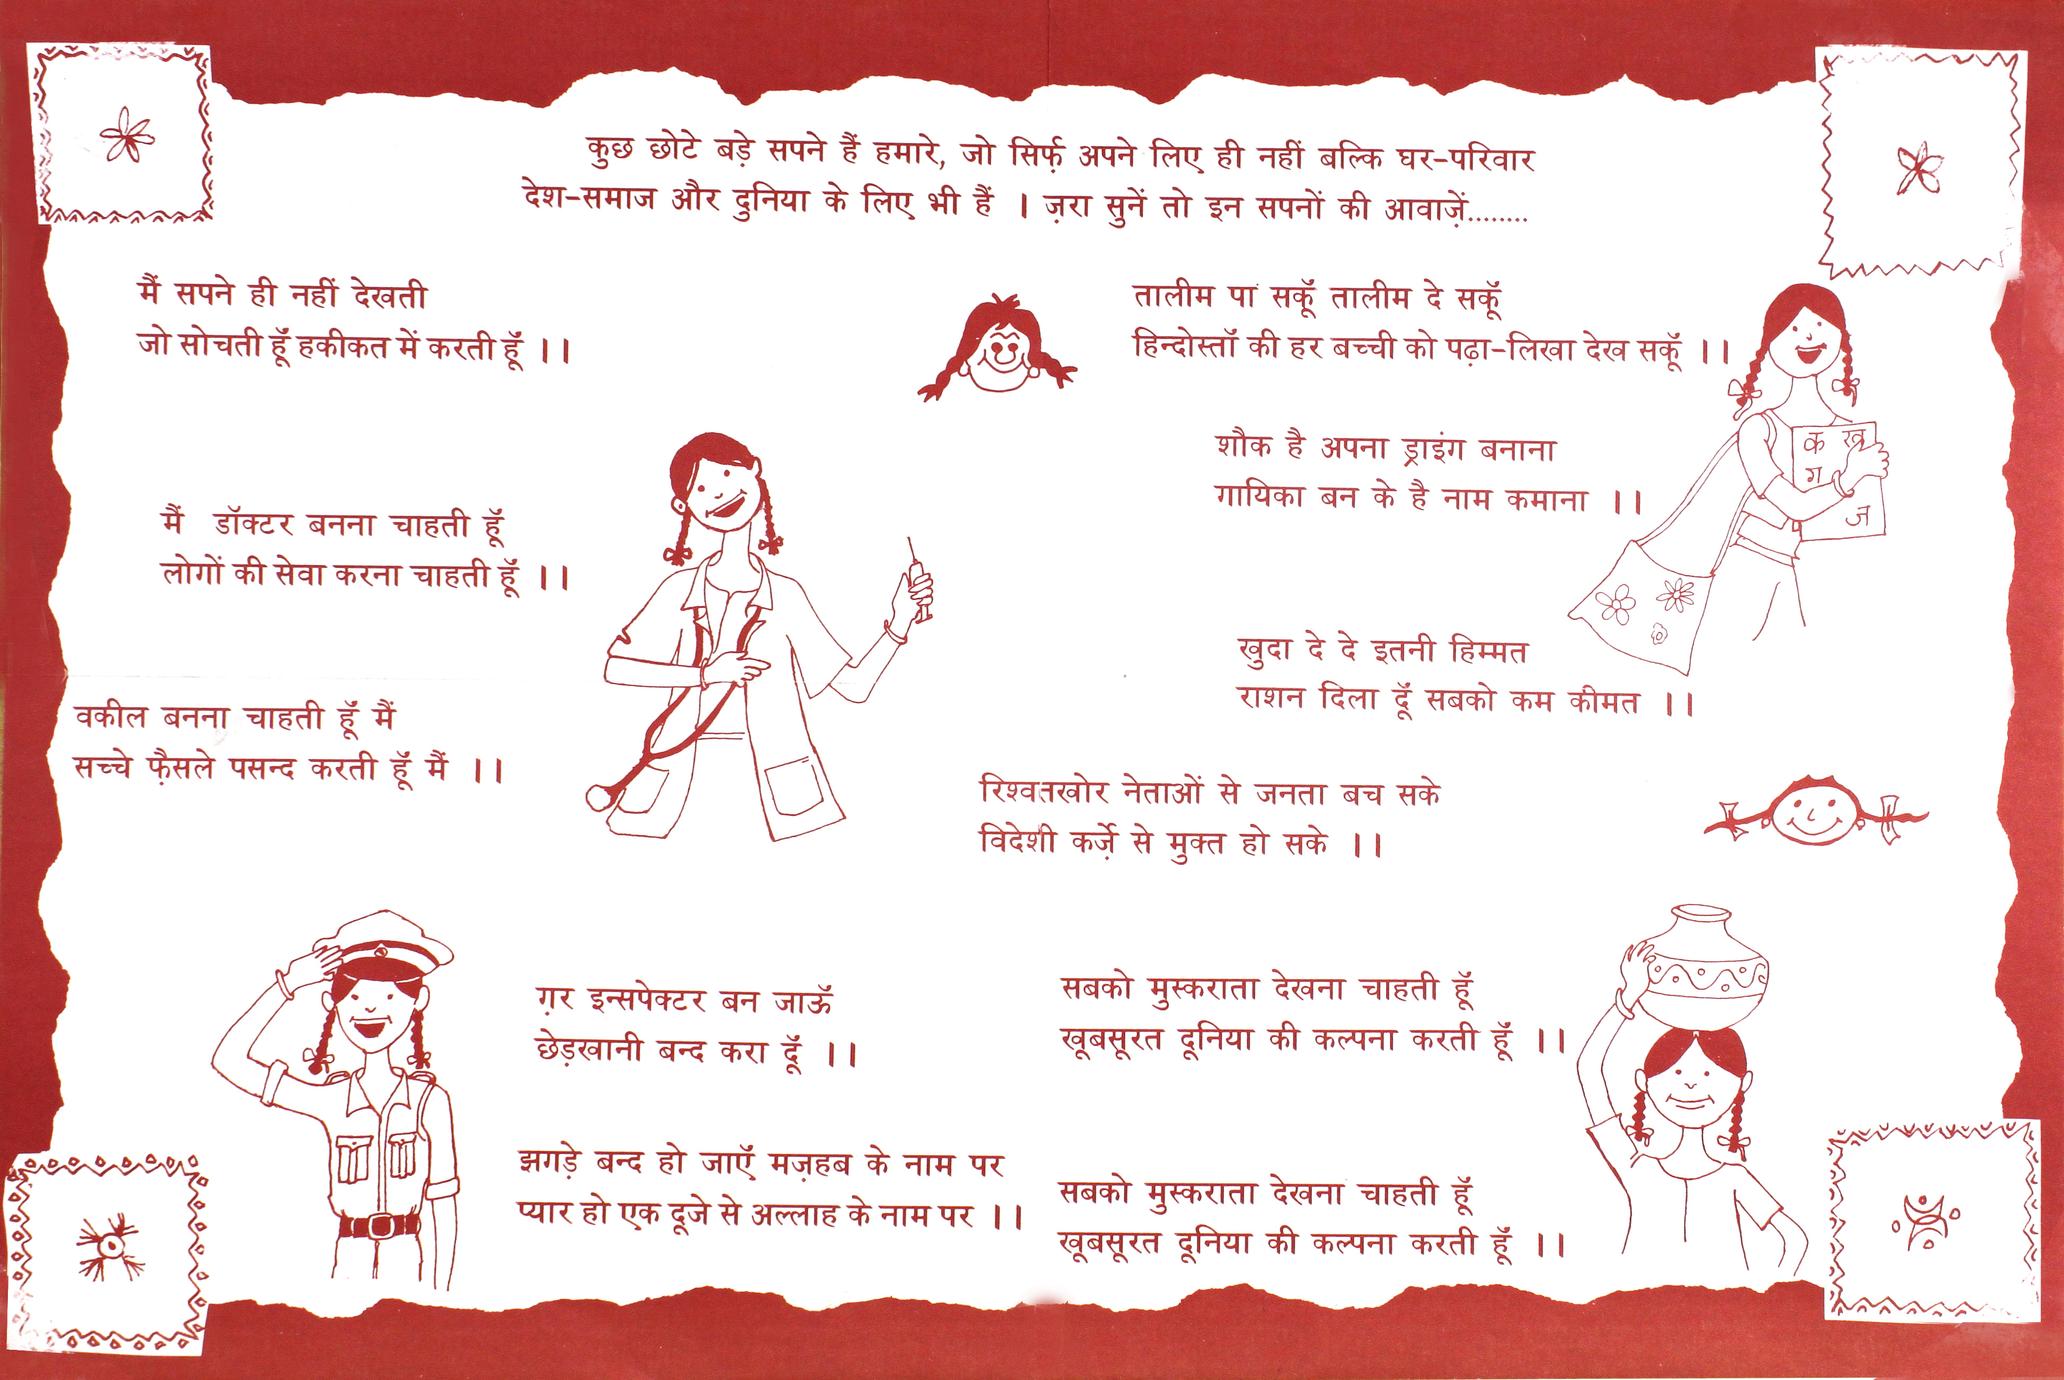 कुछ छोटे बड़े सपने हैं हमारे, जो सिर्फ़ अपने लिए ही नहीं बल्कि घर-परिवार
देश-समाज और दुनिया के लिए भी हैं । ज़रा सुनें तो इन सपनों की आवाज़ें........
मैं सपने ही नहीं देखती
जो सोचती हूँ हकीकत में करती हूँ ।।
मैं डॉक्टर बनना चाहती हूँ
लोगों की सेवा करना चाहती हूँ ।।
वकील बनना चाहती हूँ मैं
सच्चे फ़ैसले पसन्द करती हूँ मैं ।।
ग़र इन्सपेक्टर बन जाऊँ
छेड़खानी बन्द करा दूँ ।।
झगड़े बन्द हो जाएँ मज़हब के नाम पर
प्यार हो एक दूजे से अल्लाह के नाम पर ।।
तालीम पा सकूँ तालीम दे सकूँ
हिन्दोस्ताँ की हर बच्ची को पढ़ा-लिखा देख सकूँ ।।
क ख
ग
ज
शौक है अपना ड्राइंग बनाना
गायिका बन के है नाम कमाना ।।
खुदा दे दे इतनी हिम्मत
राशन दिला दूँ सबको कम कीमत ।।
रिश्वतखोर नेताओं से जनता बच सके
विदेशी कर्ज़े से मुक्त हो सके ।।
सबको मुस्कराता देखना चाहती हूँ
खूबसूरत दूनिया की कल्पना करती हूँ ।।
सबको मुस्कराता देखना चाहती हूँ
खूबसूरत दूनिया की कल्पना करती हूँ ।।